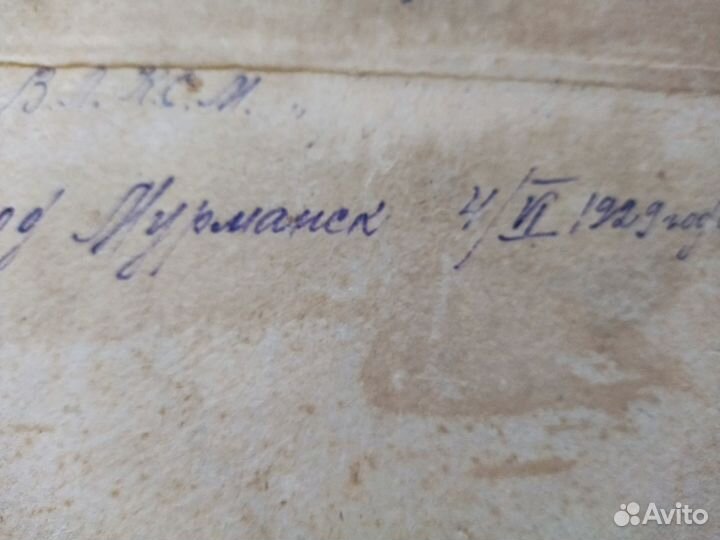 В.Л.К.С.М. "
од Мурманск 4/VI 1929 года
Avito